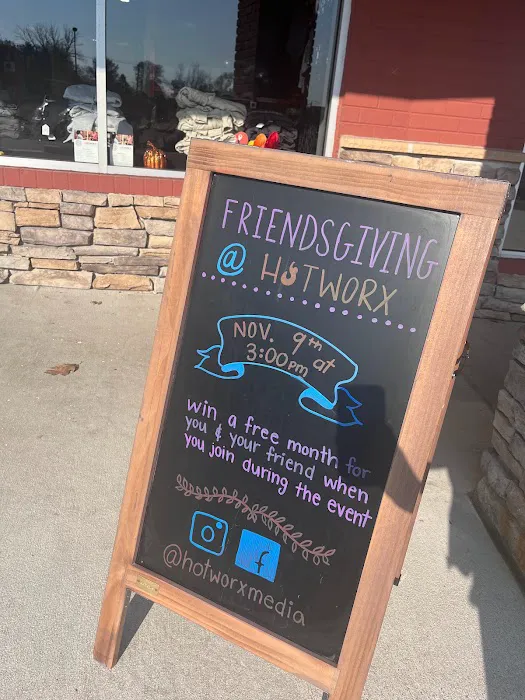 FRIENDSGIVING
@ HOTWORX
NOV. 9th at
3:00pm
win a free month for
you & your friend when
you join during the event
@hotworxmedia